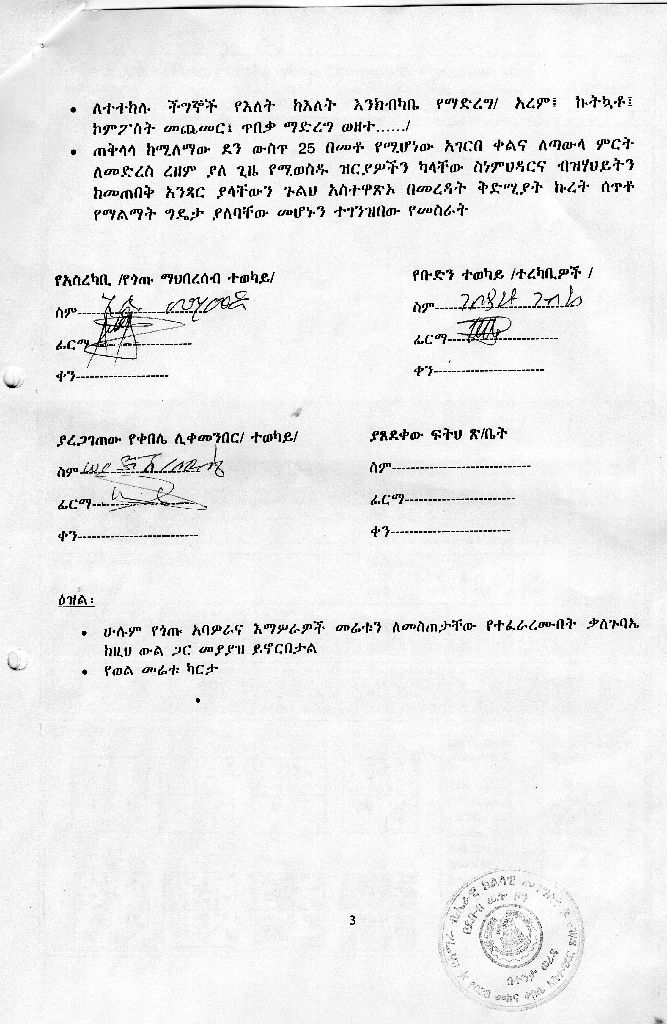 • ለተተከሉ ችግኞች የእለት ከእለት እንክብካቤ የማድረግ/ አረም፤ ኩትኳቶ፤
ኮምፖስት መጨመር፤ ጥበቃ ማድረግ ወዘተ....../
• ጠቅላላ ከሚለማው ደን ውስጥ 25 በመቶ የሚሆነው አገርበ ቀልና ለጣውላ ምርት
ለመድረስ ረዘም ያለ ጊዜ የሚወስዱ ዝርያዎችን ካላቸው ስነምህዳርና ብዝሃህይትን
ከመጠበቅ አንጻር ያላቸውን ጉልህ አስተዋጽኦ በመረዳት ቅድሚያት ኩረት ሰጥቶ
የማልማት ግዴታ ያለባቸው መሆኑን ተገንዝበው የመስራት
የአስረካቢ /የጎጡ ማህበረሰብ ተወካይ/
ስም
ፊርማ
ቀን--------------------
የቡድን ተወካይ /ተረካቢዎች /
ስም
ፊርማ
ቀን-----------------------
ያረጋገጠው የቀበሌ ሊቀመንበር/ ተወካይ/
ስም
ፊርማ
ቀን--------------------------
ያጸደቀው ፍትህ ጽ/ቤት
ስም-----------------------------
ፊርማ-----------------------
ቀን-------------------------
ዕዝል፡
• ሁሉም የጎጡ አባዎራና እማዎራዎች መሬቱን ለመስጠታቸው የተፈራረሙበት ቃለጉባኤ
ከዚህ ውል ጋር መያያዝ ይኖርበታል
• የወል መሬቱ ካርታ
•
3